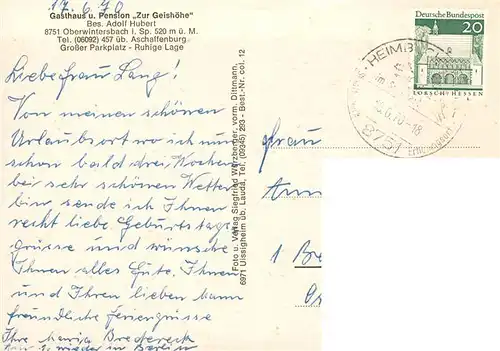 17.6.70
Gasthaus u. Pension „Zur Geishöhe"
Bes. Adolf Hubert
8751 Oberwintersbach i. Sp. 520 m ü. M.
Tel. (06092) 457 üb. Aschaffenburg
Großer Parkplatz - Ruhige Lage
Liebe Frau Lang!
Von meinen schönen
Urlaubsort wo ich nun
schon bald drei Wochen
bei sehr schönen Wetter
bin sende ich Ihnen
recht liebe Geburtstags-
grüsse und wünsche
Ihnen alles Gute. Ihnen
und Ihren lieben Mann
freundliche Feriengrüsse
Ihre Maria Bredereck
wieder in Berlin
Foto u. Verlag Siegfried Würzberger, vorm. Dittmann,
6971 Uissigheim üb. Lauda, Tel. (09345) 293 - Best.-Nr. col. 12
Deutsche Bundespost
20
LORSCH/HESSEN
HEIMBU
8751
Frau
Ann
1 Be